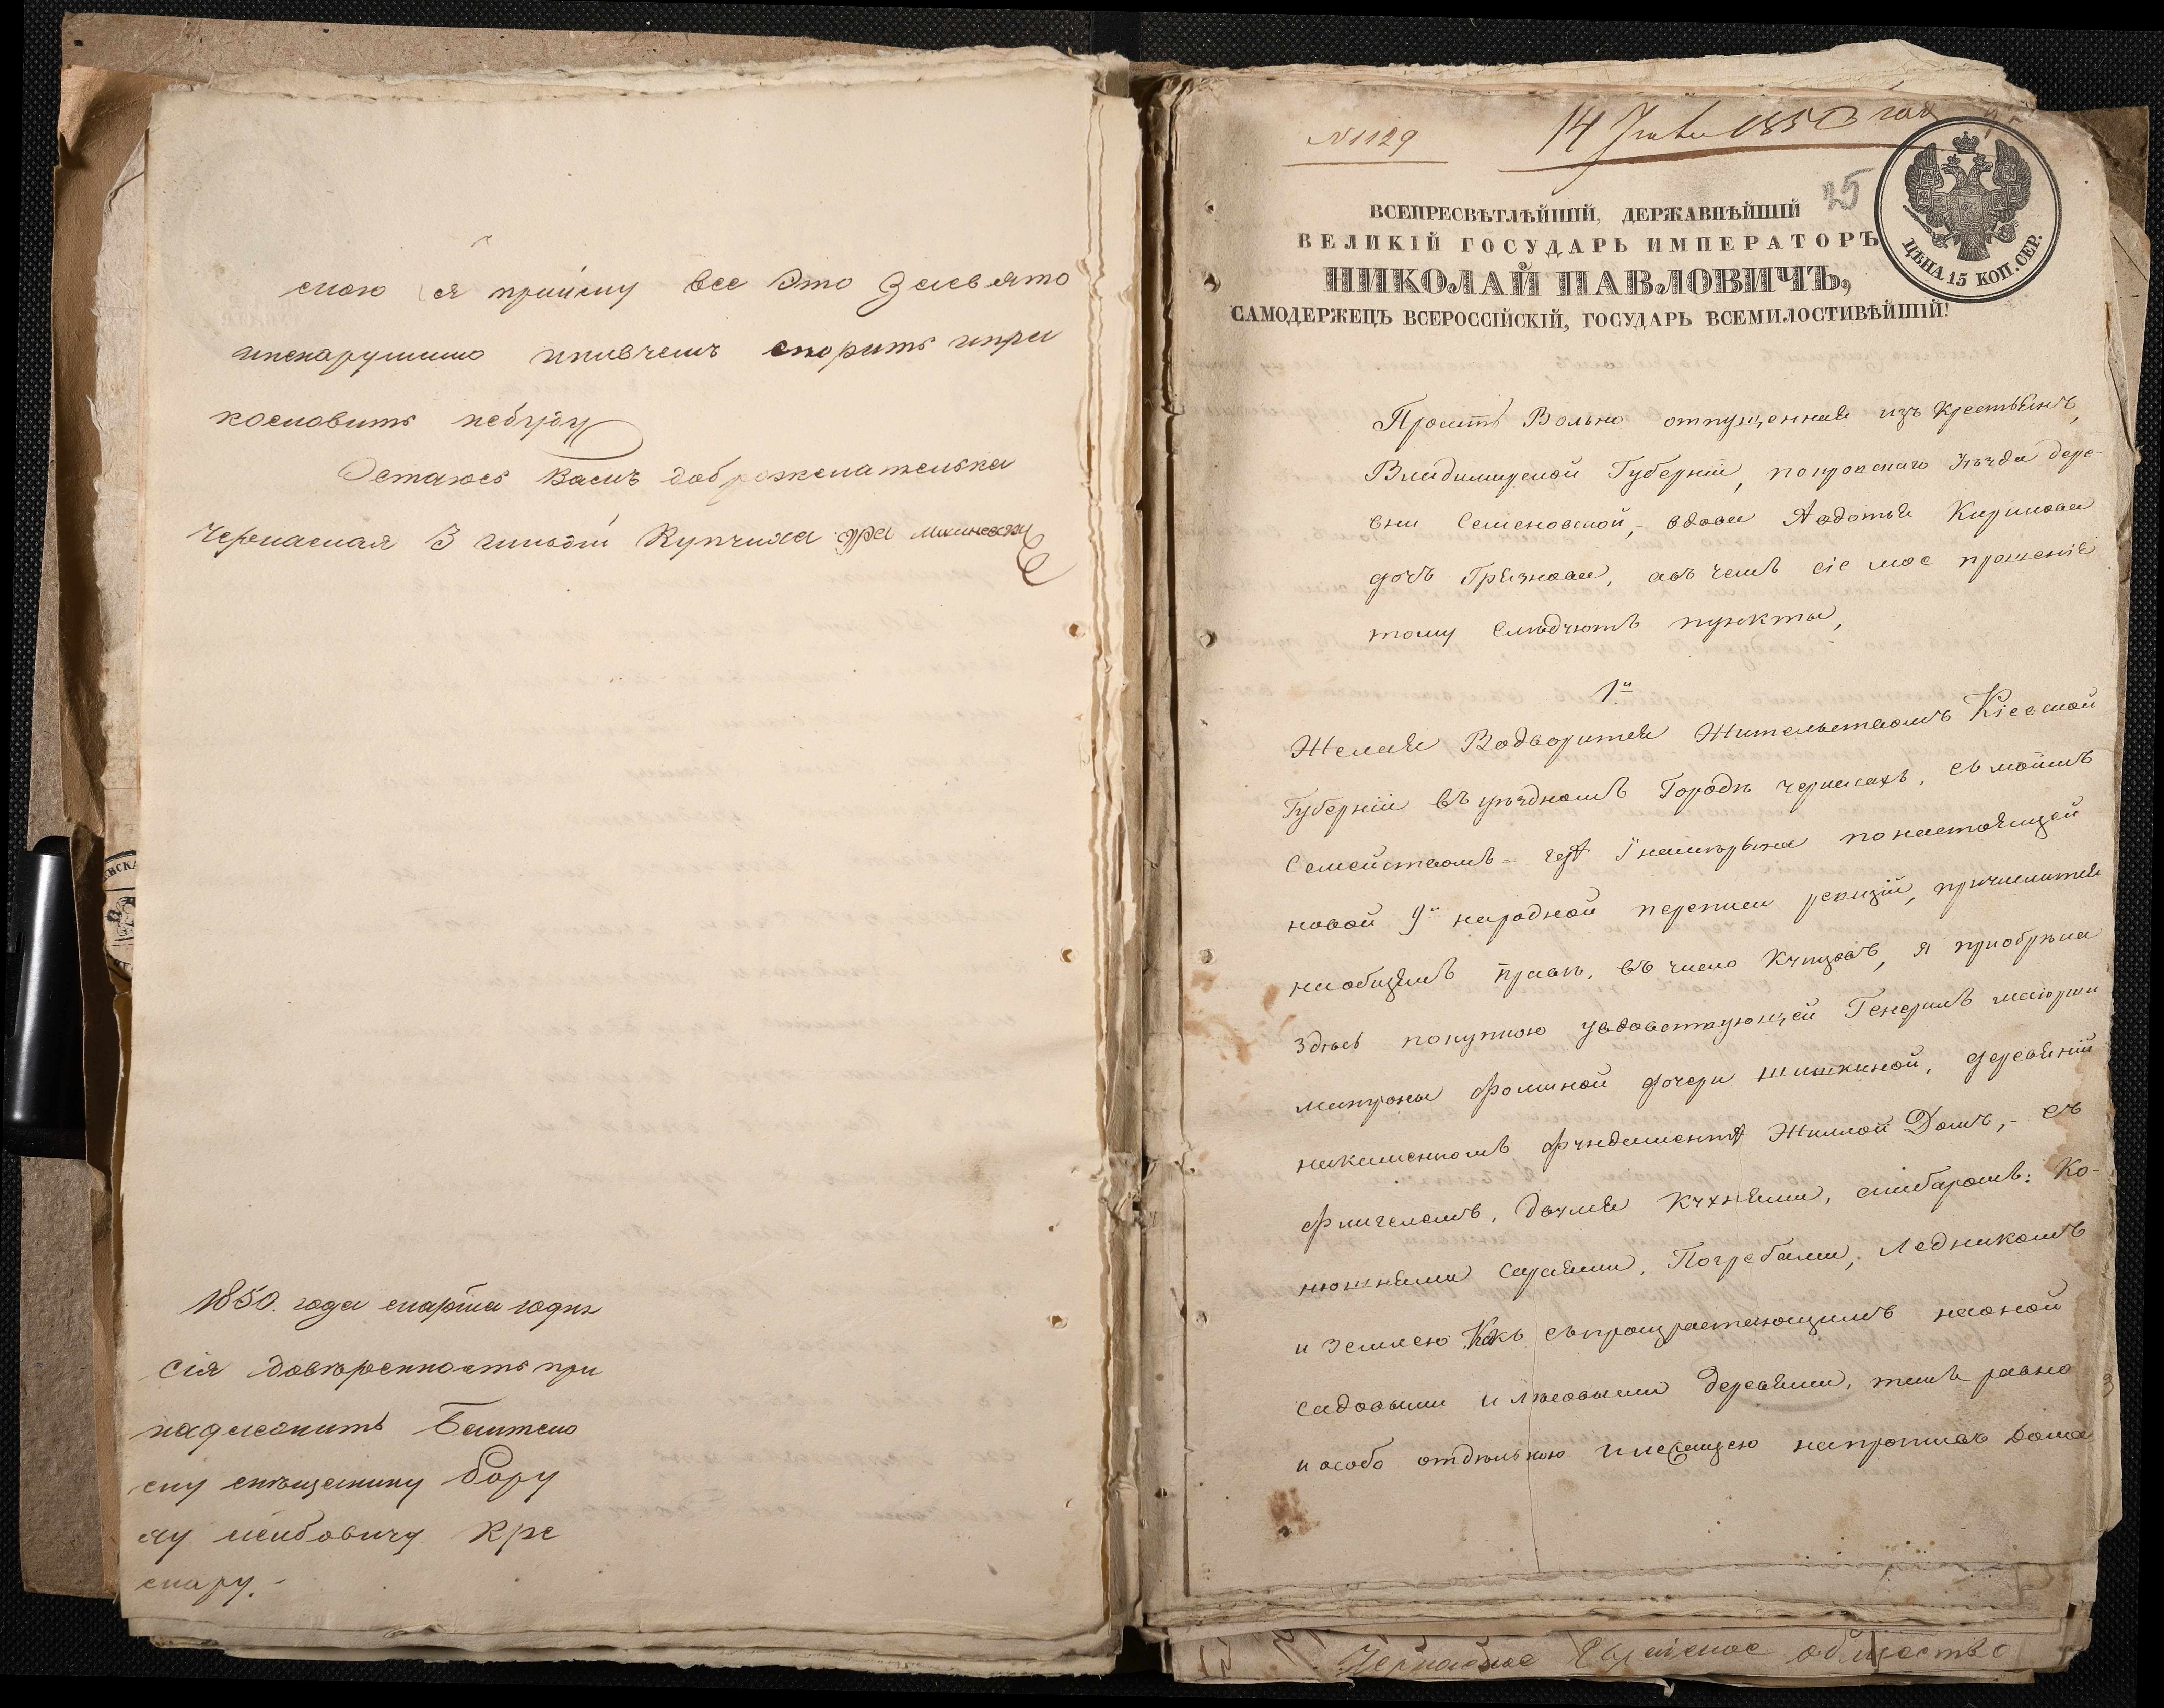 мою я прийму все Это За свято
и ненарушимо и ни в чем спорить и при
кословить небуду
Остаюсь Вам доброжелателька
Черкаская 3 гильдіи Купчиха
1850. года марта годня
Сія довѣренность при
надлежить
ему мещанину Бору
ху Лейбовичу Кре
мару.
№ 1129
14 1850 года
25
ВСЕПРЕСВѢТЛѢЙШІЙ, ДЕРЖАВНѢЙШІЙ
ВЕЛИКІЙ ГОСУДАРЬ ИМПЕРАТОРЪ
НИКОЛАЙ ПАВЛОВИЧЪ,
САМОДЕРЖЕЦЪ ВСЕРОССІЙСКІЙ, ГОСУДАРЬ ВСЕМИЛОСТИВѢЙШІЙ!
ЦѢНА 15 КОП. СЕР.
Проситъ Вольно отпущенная изъ Крестьянъ,
Владимирской Губерніи, покровскаго уѣзда дере-
вни Семеновской, вдова Авдотья Кирилова
дочь Грязнова, а въ чемъ сіе мое прошеніе
тому Слѣдуютъ пункты,
1й
Желая Водворится Жительствомъ Кіевской
Губерніи въ уѣздномъ Городѣ черкасахъ, съ моимъ
Семействомъ понастоящей
новой 9й народной переписи ревизіи, причислится
наобщемъ правѣ, въ число Купцовъ, я приобрѣла
Здѣсь покупкою увдовствующей Генералъ маіорши
матроны фоминой дочери шишкиной, деревяній
накаменномъ фундаментѣ Жилой Домъ, съ
флигелемъ, двумя Кухнями, амбаромъ: Ко-
нюшнями Сараями, Погребами, Ледникомъ
и Землею Какъ съпроизрастающимъ наоной
садовыми и лѣсовыми деревями, темъ равно
и особо отдѣльною плесащею напротивъ Дома
Черкаское Еврейское общество